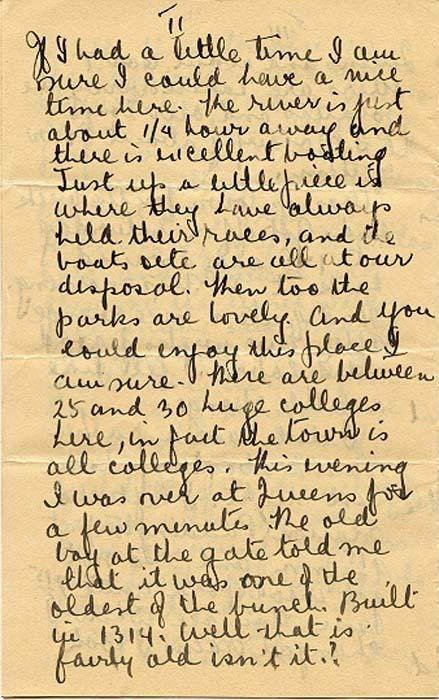 11
If I had a little time I am
sure I could have a nice
time here. The river is just
about 1/4 hour away and
there is excellent boating
Just up a little piece is
where they have always
held their races, and the
boats etc are all at our
disposal. Then too the
parks are lovely. And you
could enjoy this place I
am sure. There are between
25 and 30 huge colleges
here, in fact the town is
all colleges. This evening
I was over at Queens for
a few minutes. The old
boy at the gate told me
that it was one of the
oldest of the bunch. Built
in 1314. Well that is
fairly old isn't it.?